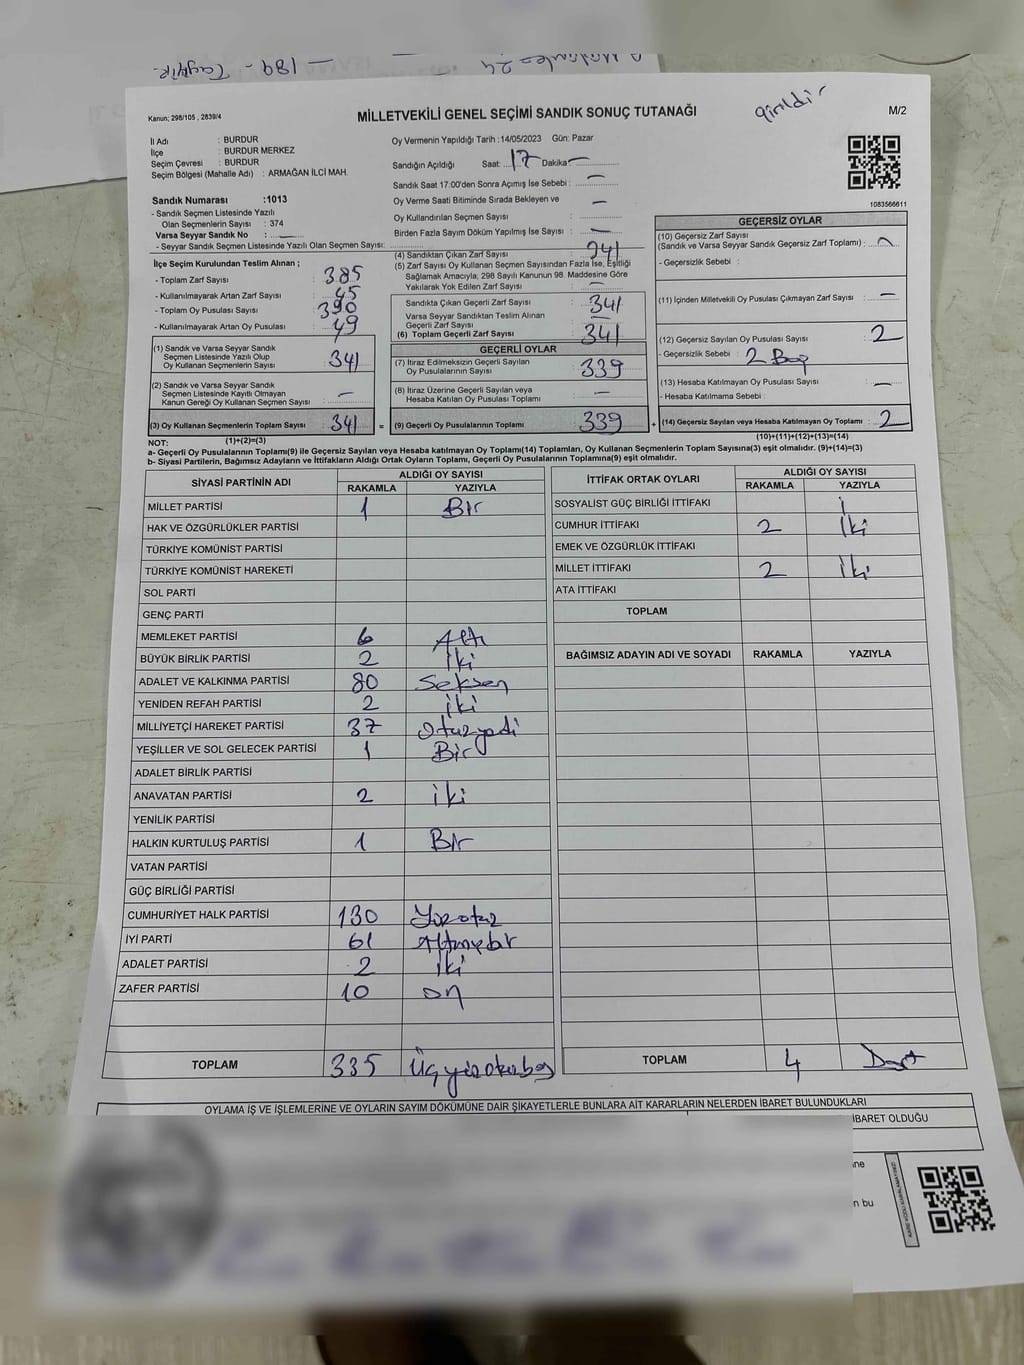 Tayyip - 189 -
24
Kanun; 298/105 , 2839/4
MİLLETVEKİLİ GENEL SEÇİMİ SANDIK SONUÇ TUTANAĞI
girildi
M/2
İl Adı : BURDUR
İlçe : BURDUR MERKEZ
Seçim Çevresi : BURDUR
Seçim Bölgesi (Mahalle Adı) : ARMAĞAN İLCİ MAH.
Oy Vermenin Yapıldığı Tarih :14/05/2023 Gün: Pazar
Sandığın Açıldığı Saat: 17 Dakika: —
Sandık Saat 17:00'den Sonra Açımış İse Sebebi : —
Oy Verme Saati Bitiminde Sırada Bekleyen ve
Oy Kullandırılan Seçmen Sayısı : —
Birden Fazla Sayım Döküm Yapılmış İse Sayısı : —
1083566611
Sandık Numarası :1013
- Sandık Seçmen Listesinde Yazılı
Olan Seçmenlerin Sayısı : 374
Varsa Seyyar Sandık No : —
- Seyyar Sandık Seçmen Listesinde Yazılı Olan Seçmen Sayısı:
İlçe Seçim Kurulundan Teslim Alınan ;
- Toplam Zarf Sayısı : 385
- Kullanılmayarak Artan Zarf Sayısı : 45
- Toplam Oy Pusulası Sayısı : 390
- Kullanılmayarak Artan Oy Pusulası : 49
(1) Sandık ve Varsa Seyyar Sandık
Seçmen Listesinde Yazılı Olup
Oy Kullanan Seçmenlerin Sayısı : 341
(2) Sandık ve Varsa Seyyar Sandık
Seçmen Listesinde Kayıtlı Olmayan
Kanun Gereği Oy Kullanan Seçmen Sayısı : —
(3) Oy Kullanan Seçmenlerin Toplam Sayısı : 341 =
(4) Sandıktan Çıkan Zarf Sayısı : 341
(5) Zarf Sayısı Oy Kullanan Seçmen Sayısından Fazla İse, Eşitliği
Sağlamak Amacıyla; 298 Sayılı Kanunun 98. Maddesine Göre
Yakılarak Yok Edilen Zarf Sayısı : —
Sandıkta Çıkan Geçerli Zarf Sayısı : 341
Varsa Seyyar Sandıktan Teslim Alınan
Geçerli Zarf Sayısı : —
(6) Toplam Geçerli Zarf Sayısı : 341
GEÇERLİ OYLAR
(7) İtiraz Edilmeksizin Geçerli Sayılan
Oy Pusulalarının Sayısı : 339
(8) İtiraz Üzerine Geçerli Sayılan veya
Hesaba Katılan Oy Pusulası Toplamı : —
(9) Geçerli Oy Pusulalarının Toplamı : 339 +
GEÇERSİZ OYLAR
(10) Geçersiz Zarf Sayısı
(Sandık ve Varsa Seyyar Sandık Geçersiz Zarf Toplamı) : —
- Geçersizlik Sebebi :
(11) İçinden Milletvekili Oy Pusulası Çıkmayan Zarf Sayısı : —
(12) Geçersiz Sayılan Oy Pusulası Sayısı : 2
- Geçersizlik Sebebi : 2 Boş
(13) Hesaba Katılmayan Oy Pusulası Sayısı : —
- Hesaba Katılmama Sebebi :
(14) Geçersiz Sayılan veya Hesaba Katılmayan Oy Toplamı : 2
(10)+(11)+(12)+(13)=(14)
NOT: (1)+(2)=(3)
a- Geçerli Oy Pusulalarının Toplamı(9) ile Geçersiz Sayılan veya Hesaba katılmayan Oy Toplamı(14) Toplamları, Oy Kullanan Seçmenlerin Toplam Sayısına(3) eşit olmalıdır. (9)+(14)=(3)
b- Siyasi Partilerin, Bağımsız Adayların ve İttifakların Aldığı Ortak Oyların Toplamı, Geçerli Oy Pusulalarının Toplamına(9) eşit olmalıdır.
SİYASİ PARTİNİN ADI ALDIĞI OY SAYISI
RAKAMLA YAZIYLA
MİLLET PARTİSİ 1 Bir
HAK VE ÖZGÜRLÜKLER PARTİSİ
TÜRKİYE KOMÜNİST PARTİSİ
TÜRKİYE KOMÜNİST HAREKETİ
SOL PARTİ
GENÇ PARTİ
MEMLEKET PARTİSİ 6 Altı
BÜYÜK BİRLİK PARTİSİ 2 İki
ADALET VE KALKINMA PARTİSİ 80 Seksen
YENİDEN REFAH PARTİSİ 2 İki
MİLLİYETÇİ HAREKET PARTİSİ 37 Otuzyedi
YEŞİLLER VE SOL GELECEK PARTİSİ 1 Bir
ADALET BİRLİK PARTİSİ
ANAVATAN PARTİSİ 2 İki
YENİLİK PARTİSİ
HALKIN KURTULUŞ PARTİSİ 1 Bir
VATAN PARTİSİ
GÜÇ BİRLİĞİ PARTİSİ
CUMHURİYET HALK PARTİSİ 130 Yüzotuz
İYİ PARTİ 61 Altmışbir
ADALET PARTİSİ 2 İki
ZAFER PARTİSİ 10 On
TOPLAM 335 Üçyüzotuzbeş
İTTİFAK ORTAK OYLARI ALDIĞI OY SAYISI
RAKAMLA YAZIYLA
SOSYALİST GÜÇ BİRLİĞİ İTTİFAKI
CUMHUR İTTİFAKI 2 İki
EMEK VE ÖZGÜRLÜK İTTİFAKI
MİLLET İTTİFAKI 2 İki
ATA İTTİFAKI
TOPLAM
BAĞIMSIZ ADAYIN ADI VE SOYADI RAKAMLA YAZIYLA
TOPLAM 4 Dört
OYLAMA İŞ VE İŞLEMLERİNE VE OYLARIN SAYIM DÖKÜMÜNE DAİR ŞİKAYETLERLE BUNLARA AİT KARARLARIN NELERDEN İBARET BULUNDUKLARI
İBARET OLDUĞU
ne
n bu